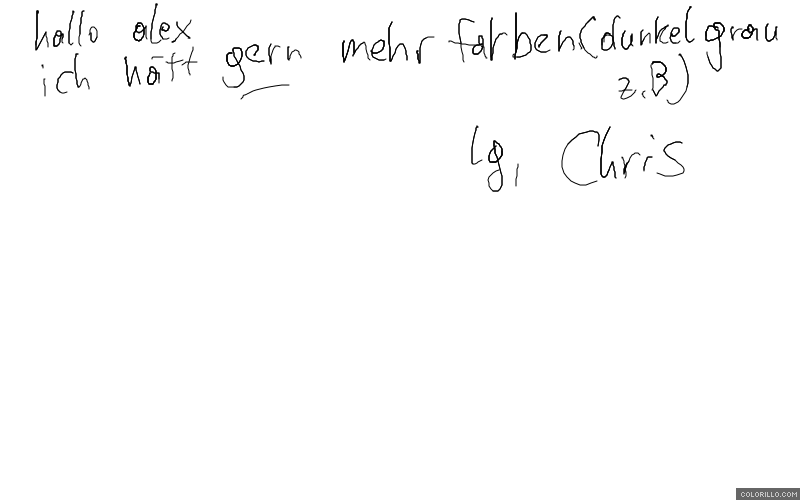 hallo alex
ich hätt gern mehr farben(dunkelgrau
z.B)
lg, Chris
COLORILLO.COM